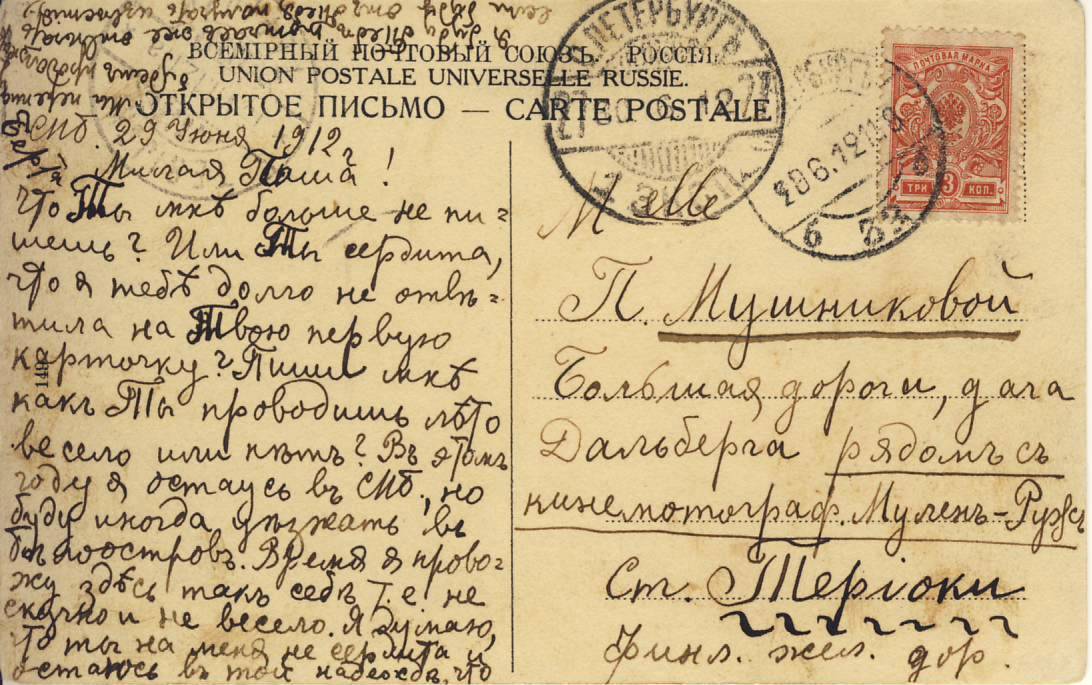 ВСЕМІРНЫЙ ПОЧТОВЫЙ СОЮЗЪ. РОССІЯ.
UNION POSTALE UNIVERSELLE RUSSIE.
ОТКРЫТОЕ ПИСЬМО — CARTE POSTALE
ПОЧТОВАЯ МАРКА
ТРИ 3 КОП.
С.ПЕТЕРБУРГЪ
СПб. 29 Іюня 1912 г.
Милая Паша!
Что Ты мнѣ больше не пи-
шешь? Или Ты сердита,
что я тебѣ долго не отвѣ-
тила на Твою первую
карточку? Пиши мнѣ
какъ Ты проводишь лѣто
весело или нѣтъ? Въ этомъ
году я остаусь въ СПб., но
буду иногда уѣзжать въ
Бѣлоостровъ. Время я прово-
жу здѣсь такъ себѣ т.е не
скучно и не весело. Я думаю,
что ты на меня не сердита и
остаюсь въ той надеждѣ, что
1492
M elle
П. Мушниковой
Большая дороги, дача
Дальберга рядомъ съ
кинемотограф. Муленъ-Ружъ
Ст. Теріоки
Финл. жел. дор.